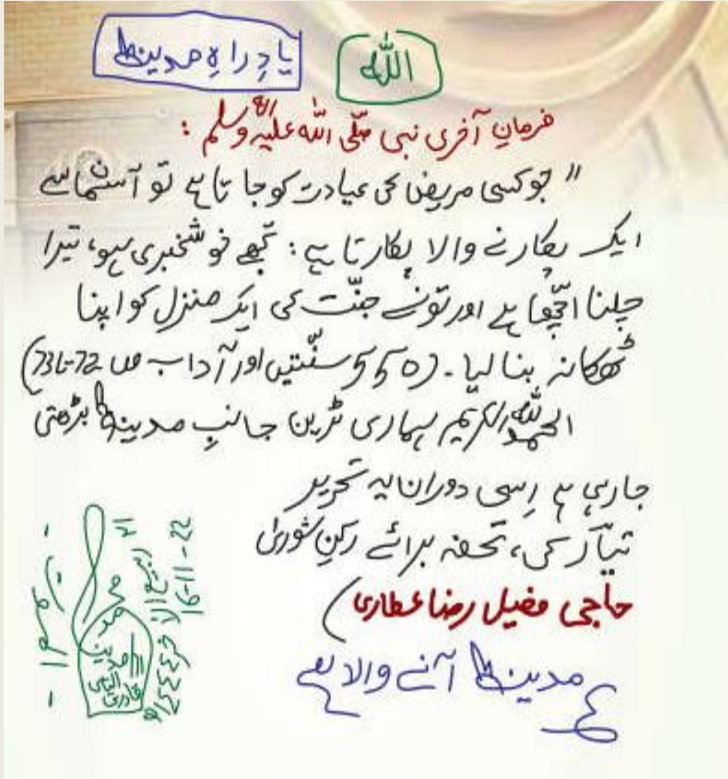 یادِ راہِ مدینہ
اللہ
فرمانِ آخری نبی صلّی اللہ علیہ واٰلہٖ وسلم :
"جو کسی مریض کی عیادت کو جاتا ہے تو آسمان سے
ایک پکارنے والا پکارتا ہے : تجھے خوشخبری ہو، تیرا
چلنا اچّھا ہے اور تونے جنّت کی ایک منزل کو اپنا
ٹھکانہ بنا لیا۔ (550 سنّتیں اور آداب ص 72 تا 73)
الحمدللہ الکریم ہماری ٹرین جانبِ مدینہ بڑھتی
جارہی ہے اِسی دوران یہ تحریر
تیّار کی، تحفہ برائے رکنِ شوریٰ
حاجی فضیل رضا عطاری
مدینہ آنے والا ہے
محمد الیاس قادری
۲۱ ربیع الآخر ۱۴۴۴ھ
16-11-22